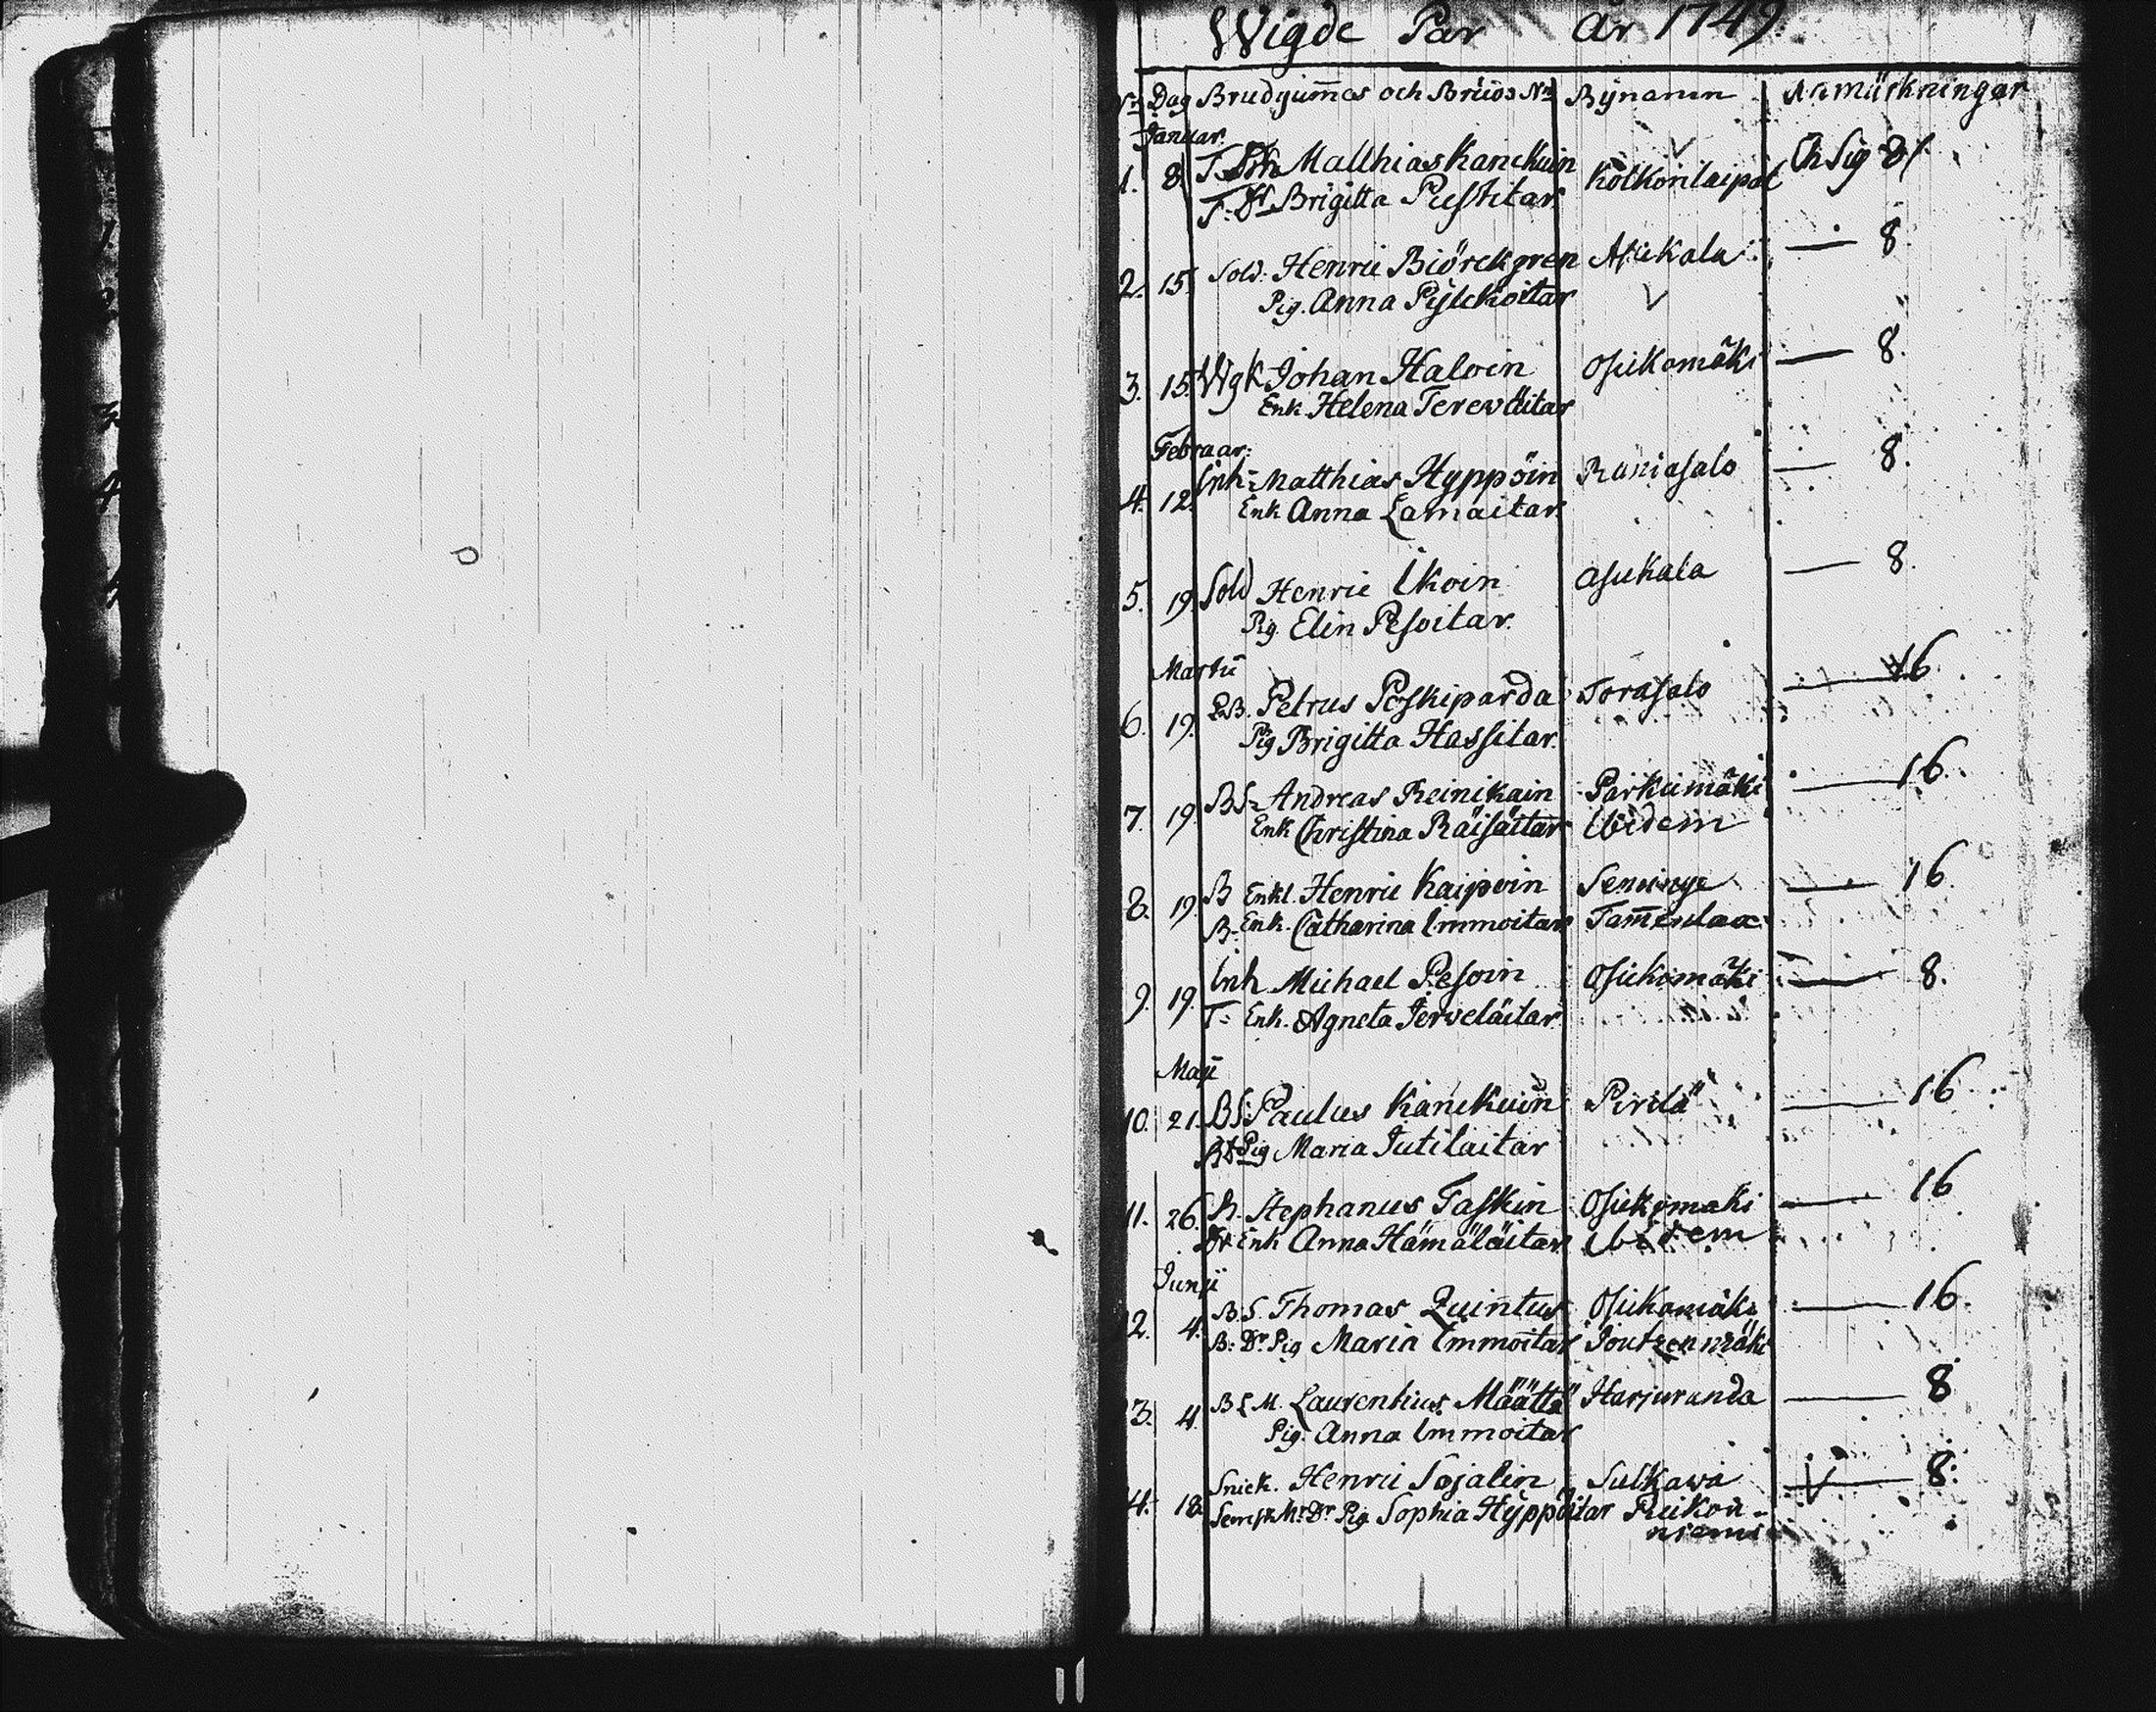 Wigde Par År 1749.
Nr Dag Brudgum̅es och Bruds Nn Bynamn Anmärkningar
Januar.
1. 8 T. Matthias Kanckuin Kolkonlaipat Ch Sig 8
T. Dr Brigitta Pustitar
2. 15. Sold. Henric Biörckgren Asukala — 8.
Pig. Anna Pylckoitar
3. 15. Wgk Johan Haloin Osikomäki — 8.
Enk. Helena Terewäitar
Februar:
4. 12. Inh. Matthias Hyppöin Rauniasalo — 8.
Enk Anna Lamaitar.
5. 19. Sold Henric Ikoin Asukala — 8.
Pig. Elin Pesoitar.
Martii
6. 19. Petrus Poskiparda Torasalo — 16.
Pig Brigitta Hassitar.
7. 19. BS. Andreas Reinikain Parkumäki — 16.
Enk Christina Räisäitar Ibidem
8. 19. B Enkl. Henric Kaipoin Seminge — 16.
B. Enk. Catharina Immoitar Tam̅enlax
9. 19. Inh. Michael Pesoin Osikomäki — 8.
T. Enk. Agneta Jerweläitar
Maji
10. 21. BS. Paulus Kanckuin Pirilä — 16
B Dr Pig Maria Jutilaitar
11. 26. Stephanus Taskin Osikomäki — 16
Enk Anna Hämäläitar Ibidem
Junji
12. 4. B.S. Thomas Quintus Osikomäki — 16.
B. Dr. Pig Maria Immoitar Joutzenmäki
13. 4. Laurentius Määttä Harjuranda — 8
Pig. Anna Immoitar
14. 18. Snick. Henric Sojalin Sulkawa — 8.
Dr Pig Sophia Hyppöitar Reikon-
niemi
11